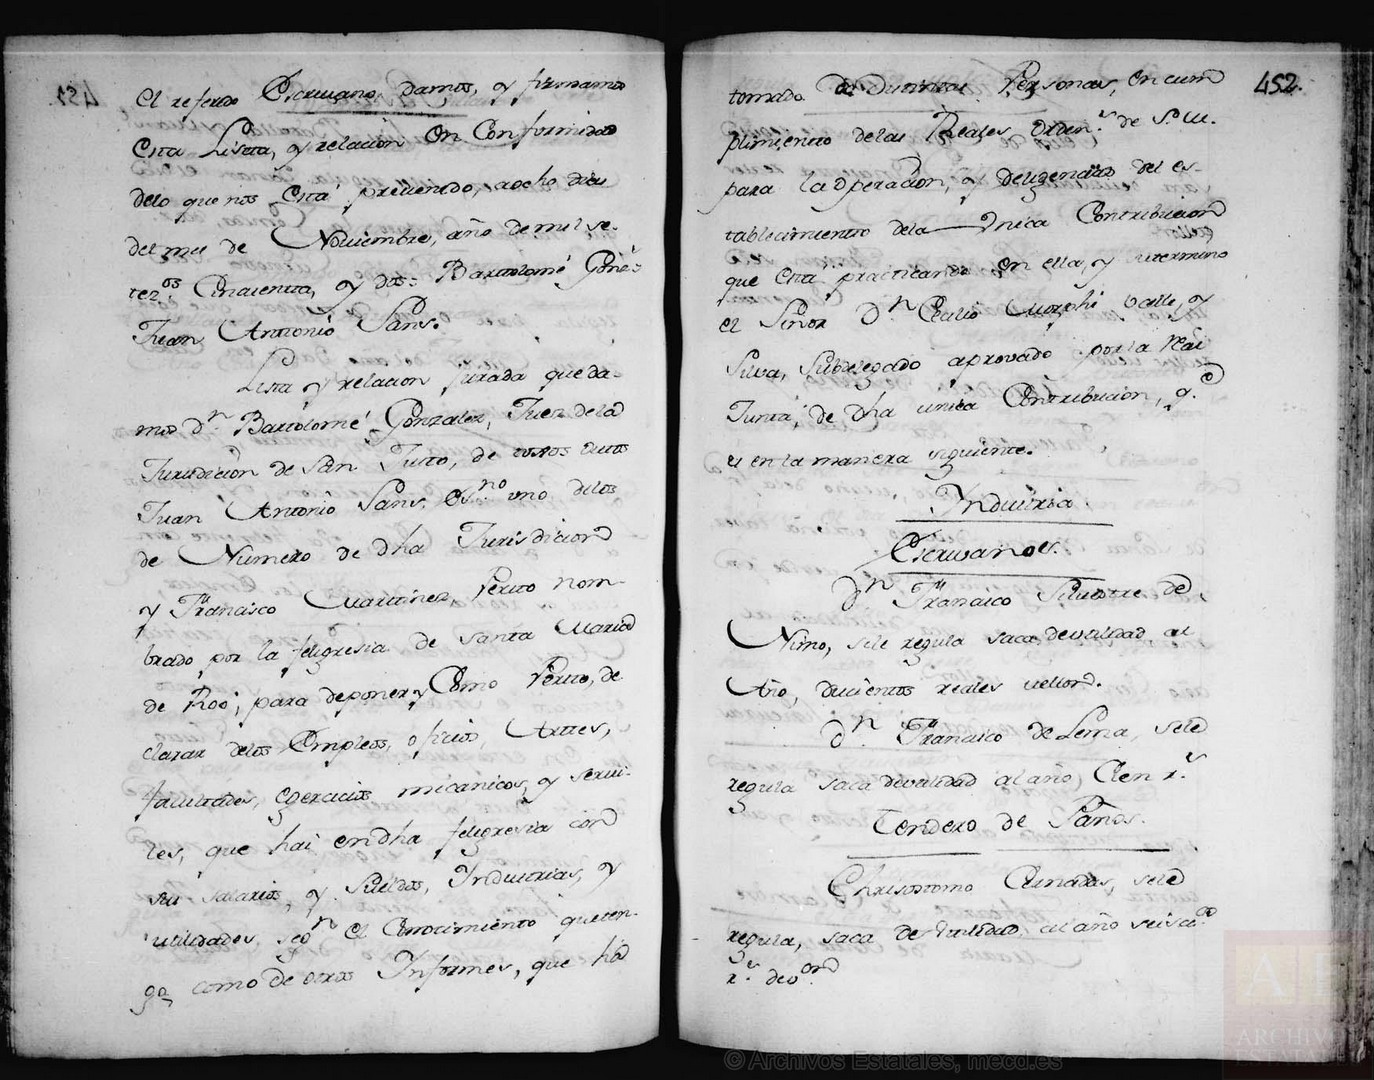 el referido Escrivano damos, y firmamos
Esta Lista, y relacion en Conformidad
delo que nos Está prevenido, a ocho dias
del mes de Noviembre, año de mil se-
tez.os Cinquenta, y dos= Bartolomé Gonz.z
Juan Antonio Sans.
Lista y relacion jurada que da-
mos D.n Bartolomé Gonzalez, Juez dela
Jurisdicion de Sn Justo, de
Juan Antonio Sans, Es.no uno delos
de Numero de dha Jurisdicion
y Fran.co Martinez, Perito nom-
brado por la feligresia de Santa Maria
de Roó, para deponer y Como Perito, de
clarar delos Empleos, oficios, Artes,
facultades, egercicios micanicos, y servi-
les, que hai en dha feligresia con
sus salarios, y Sueldos, Industrias, y
utilidades seg.n el Conocimiento que ten-
ga como de otros Informes, que ha
452.
tomado de Distintas Personas, en cum
plimiento delas Reales orden.s de S.M.
para la operacion, y deligencias del es-
tablecimiento dela Unica Contribucion
que Está practicando en ella, y su termino
el Señor D.n Cecilio Morphi Valle, y
Silva, Subdelegado aprovado por la Real
Junta, de dha unica Contribucion, q.e
es en la manera siguiente.
Industria.
Escrivanos.
D.n Francisco Silvestre de
Nimo, sele regula saca de utilidad al
Año, ducientos reales vellon.
D.n Francisco de Lema, sele
regula saca de utilidad al año Cien r.s
Tendero de Paños.
Chrisostomo Cernadas, sele
regula, saca de utilidad, al año
r.s de v.on
© Archivos Estatales, mecd.es
ARCHIVOS
ESTATALES